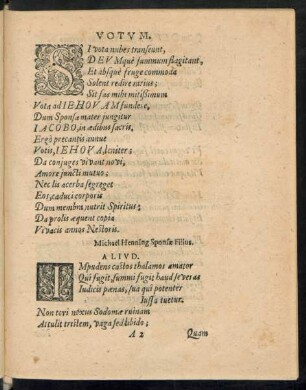 VOTVM.
SI vota nubes transeunt,
DEVMq́ue summum flagitant,
Et absq́ue fruge commoda
Solent redire rarius;
Sit fas mihi mitißimum
Vota ad IEHOVAM fundere,
Dum Sponsa mater jungitur
IACOBO, in ædibus sacris,
Ergò precantis annue
Votis, IEHOVA, leniter;
Da conjuges vivant novi,
Amore juncti mutuo;
Nec lis acerba segreget
Eos, caduci corporis
Dum membra nutrit Spiritus;
Da prolis æquent copia
Vivacis annos Nestoris.
Michael Henning Sponsæ Filius.
ALIVD.
IMpudens castos thalamos amator
Qui fugit, summi fugit haud severas
Iudicis pœnas, sua qui potenter
Iussa tuetur.
Non tori nexus Sodomæ ruinam
Attulit tristem, vaga sed libido;
A 2 Quam